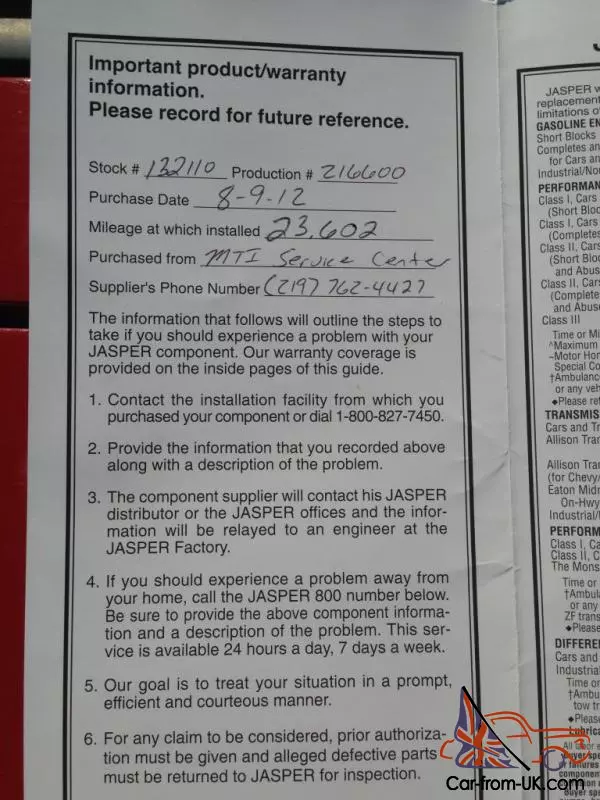 Important product/warranty
information.
Please record for future reference.
Stock # 132110 Production # 216600
Purchase Date 8-9-12
Mileage at which installed 23,602
Purchased from MTI Service Center
Supplier's Phone Number (219) 762-4427
The information that follows will outline the steps to
take if you should experience a problem with your
JASPER component. Our warranty coverage is
provided on the inside pages of this guide.
1. Contact the installation facility from which you
purchased your component or dial 1-800-827-7450.
2. Provide the information that you recorded above
along with a description of the problem.
3. The component supplier will contact his JASPER
distributor or the JASPER offices and the infor-
mation will be relayed to an engineer at the
JASPER Factory.
4. If you should experience a problem away from
your home, call the JASPER 800 number below.
Be sure to provide the above component informa-
tion and a description of the problem. This ser-
vice is available 24 hours a day, 7 days a week.
5. Our goal is to treat your situation in a prompt,
efficient and courteous manner.
6. For any claim to be considered, prior authoriza-
tion must be given and alleged defective parts
must be returned to JASPER for inspection.
J
JASPER w
replacement
limitations o
GASOLINE EN
Short Blocks
Completes an
for Cars an
Industrial/No
PERFORMAN
Class I, Cars
(Short Bloc
Class I, Cars
(Completes
Class II, Cars
(Short Bloc
and Abus
Class II, Cars
(Complete
and Abuse
Class III
Time or Mi
^Maximum
~Motor Hom
Special Co
†Ambulanc
or any veh
◆Please ref
TRANSMIS
Cars and Tr
Allison Tran
Allison Tran
(for Chevy/
Eaton Midr
On-Hwy
Industrial/
PERFORM
Class I, Ca
Class II, C
The Mons
Time or
†Ambula
or any
ZF trans
◆Please
DIFFEREN
Cars and
Industrial
Time or
†Ambu
tow tr
◆Pleas
Lubrica
All labor e
buyer spe
or failures
component
Buyer spe
Car-from-UK.com